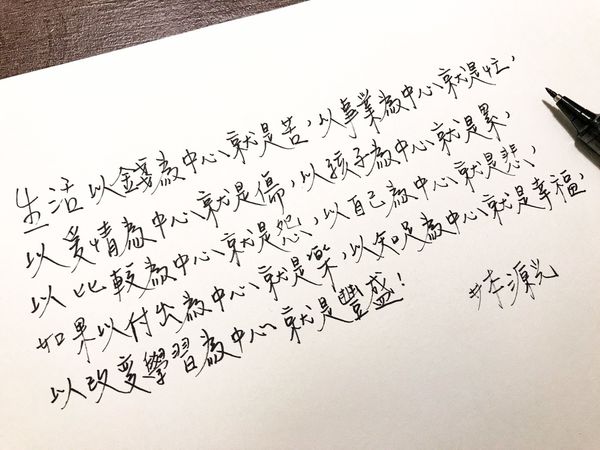 生活以錢為中心就是苦，以事業為中心就是忙，
以愛情為中心就是傷，以孩子為中心就是累，
以比較為中心就是怨，以自己為中心就是悲，
如果以付出為中心就是樂，以知足為中心就是幸福，
以改變學習為中心就是豐盛！
#李源光